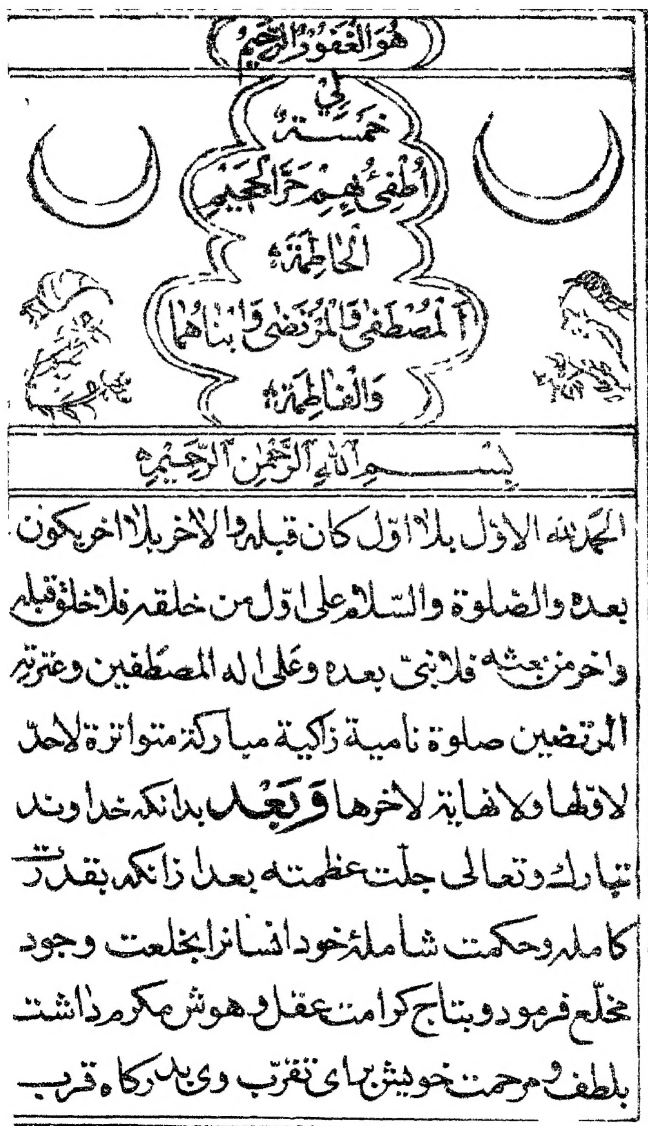 هُوَ الْغَفُورُ الرَّحِيمُ
لِي
خَمْسَةٌ
أُطْفِئُ بِهِمْ حَرَّ الْجَحِيمِ
الْحَاطِمَة
اَلْمُصْطَفٰى وَالْمُرْتَضٰى وَابْنَاهُمَا
وَالْفَاطِمَة
بِسْمِ اللهِ الرَّحْمٰنِ الرَّحِيْمِ
الحمد لله الاوّل بلا اوّل كان قبله والاخر بلا اخر يكون
بعده والصّلوة والسّلام على اوّل من خلقه فلا خلق قبله
واخر من بعثه فلا نبىّ بعده وعَلى اله المصطفين وعترته
المرتضين صلوة نامية زاكية مباركة متواترة لا حدّ
لاوّلها ولا نهاية لاخرها وَبَعْد بدانكه خداوند
تبارك وتعالى جلّت عظمته بعد از انكه بقدرت
كامله وحكمت شاملۀ خود انسانرا بخلعت وجود
مخلّع فرمود و بتاج كرامت عقل و هوش مكرم داشت
بلطف و مرحمت خويش براى تقرّب وى بدركاه قرب